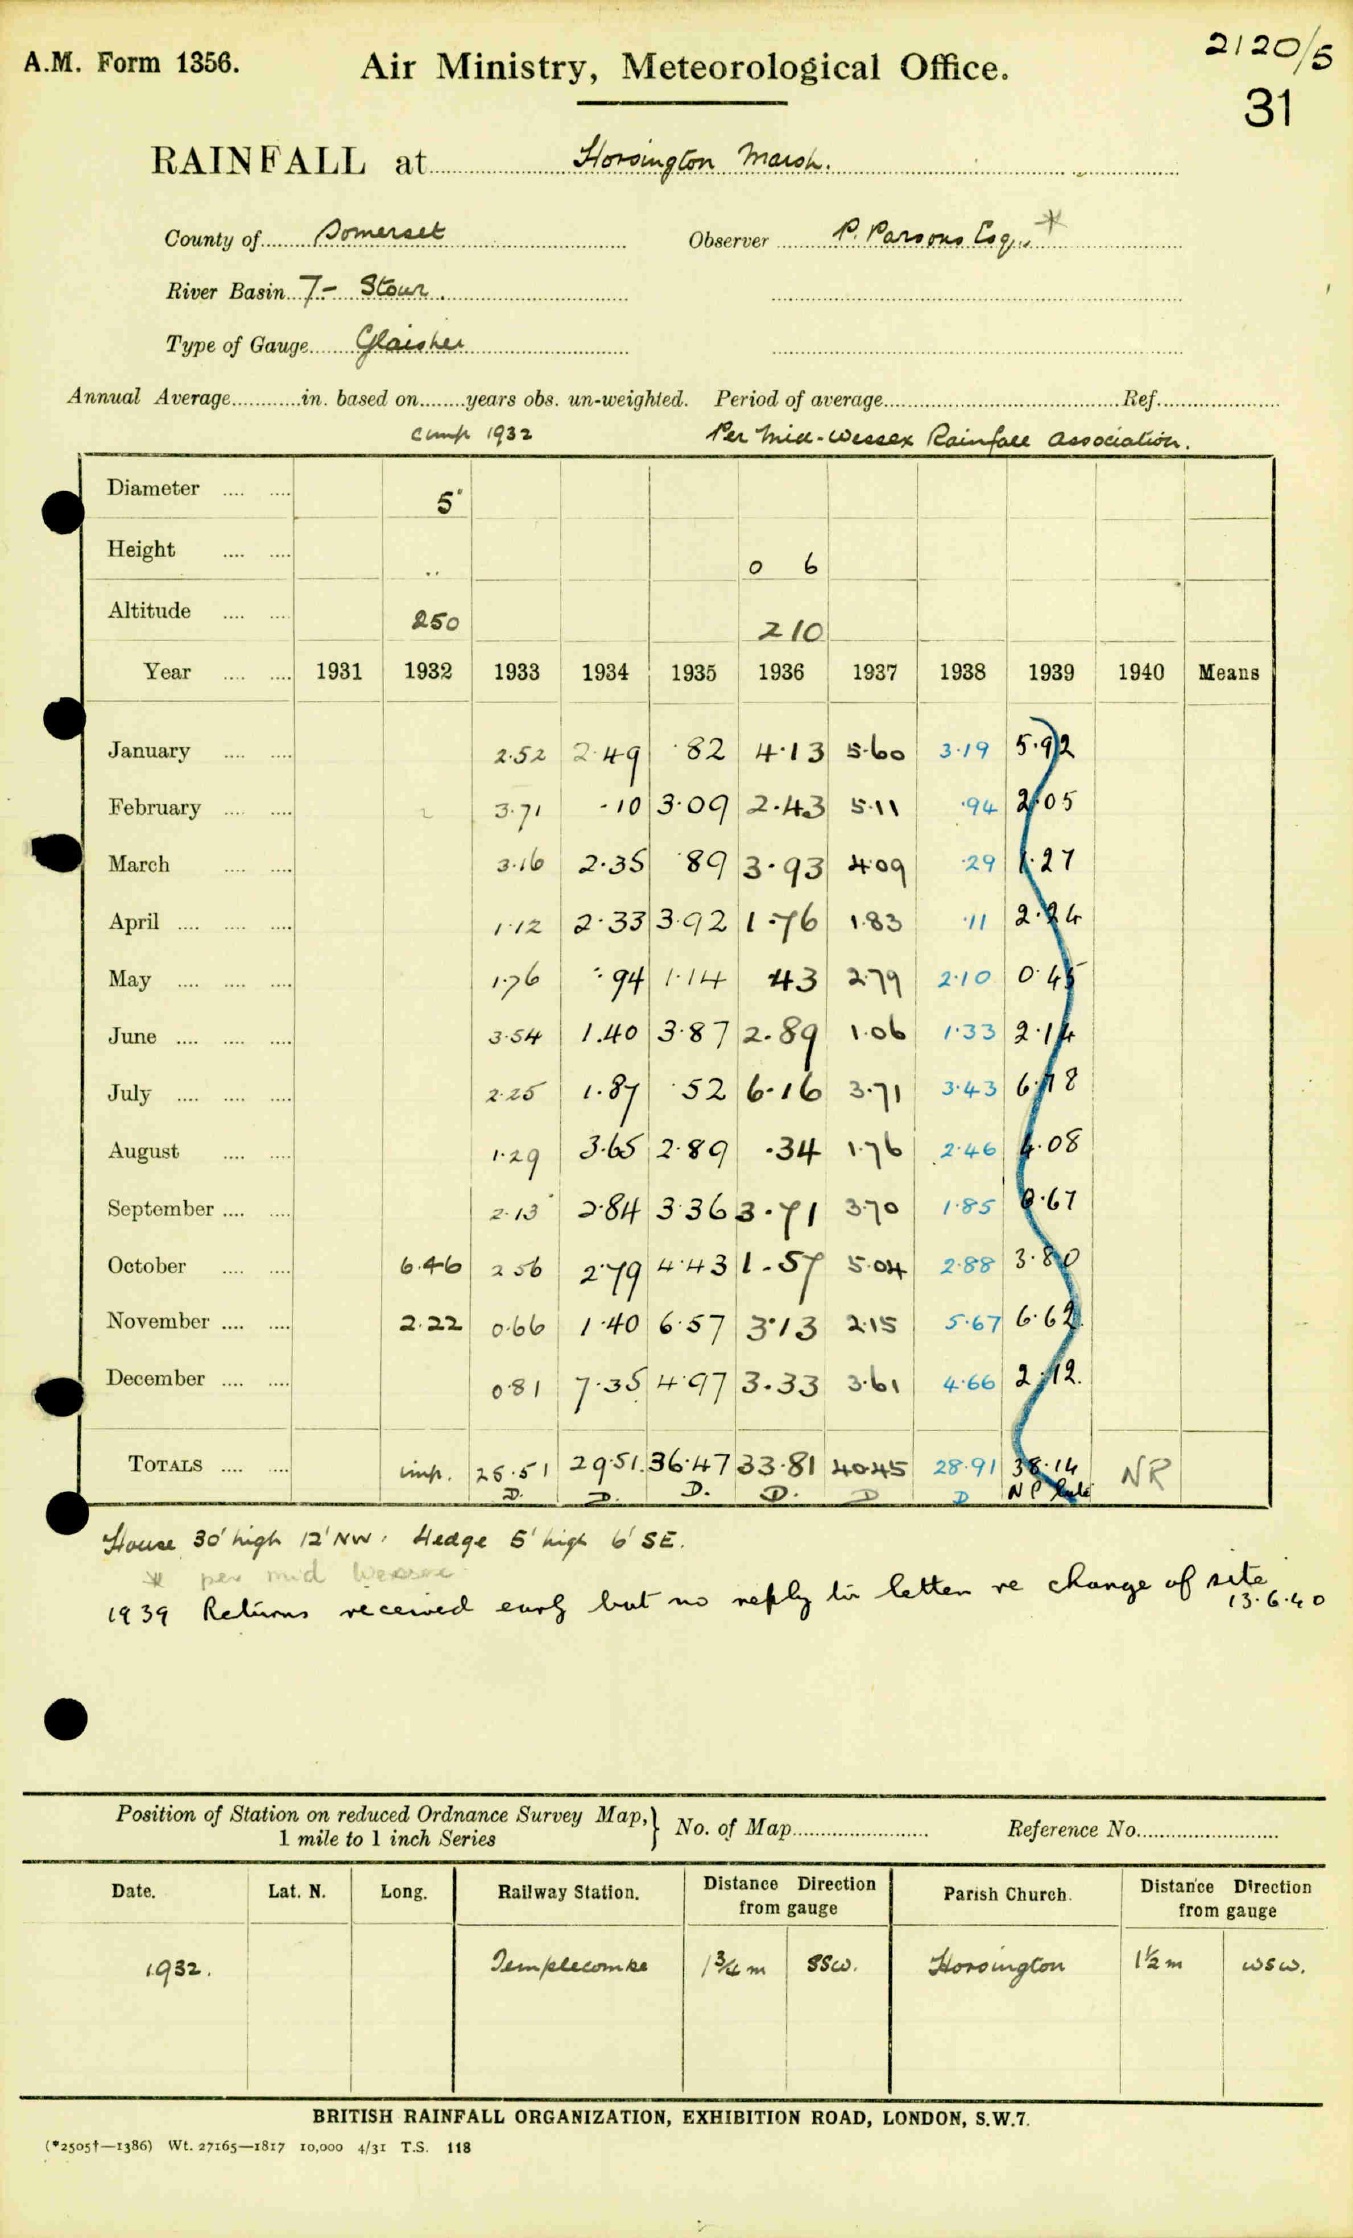 A.M. Form 1356.
Air Ministry, Meteorological Office.
2120/5
31
RAINFALL at Horsington Marsh.
County of Somerset Observer P. Parsons Esq., *
River Basin 7 - Stour.
Type of Gauge Glaisher
Annual Average............in. based on........years obs. un-weighted. Period of average..........Ref..........
1932 Per Mid-Wessex Rainfall Association.
Diameter .... .... 5"
Height .... .... .. 0 6
Altitude .... .... 250 210
Year .... .... 1931 1932 1933 1934 1935 1936 1937 1938 1939 1940 Means
January .... .... 2.52 2.49 .82 4.13 5.60 3.19 5.92
February .... .... 3.71 .10 3.09 2.43 5.11 .94 2.05
March .... .... 3.16 2.35 .89 3.93 4.09 .29 1.27
April .... .... .... 1.12 2.33 3.92 1.76 1.83 .11 2.24
May .... .... .... 1.76 .94 1.14 .43 2.79 2.10 0.45
June .... .... .... 3.54 1.40 3.87 2.89 1.06 1.33 2.14
July .... .... .... 2.25 1.87 .52 6.16 3.71 3.43 6.78
August .... .... 1.29 3.65 2.89 .34 1.76 2.46 4.08
September .... .... 2.13 2.84 3.36 3.71 3.70 1.85 0.67
October .... .... 6.46 2.56 2.79 4.43 1.57 5.04 2.88 3.80
November .... .... 2.22 0.66 1.40 6.57 3.13 2.15 5.67 6.62
December .... .... 0.81 7.35 4.97 3.33 3.61 4.66 2.12.
TOTALS .... .... imp. 25.51 29.51. 36.47 33.81 40.45 28.91 38.14 NR
D. D. D. D. D D
House 30' high 12' NW. Hedge 5' high 6' SE.
* per mid Wessex
1939 Returns received early but no reply to letter re change of site
13.6.40
Position of Station on reduced Ordnance Survey Map,} No. of Map.......... Reference No..........
1 mile to 1 inch Series
Date. Lat. N. Long. Railway Station. Distance Direction from gauge Parish Church. Distance Direction from gauge
1932. Templecombe 1¾ m SSW. Horsington 1½ m WSW.
BRITISH RAINFALL ORGANIZATION, EXHIBITION ROAD, LONDON, S.W.7.
(*2505†—1386) Wt. 27165—1817 10,000 4/31 T.S. 118